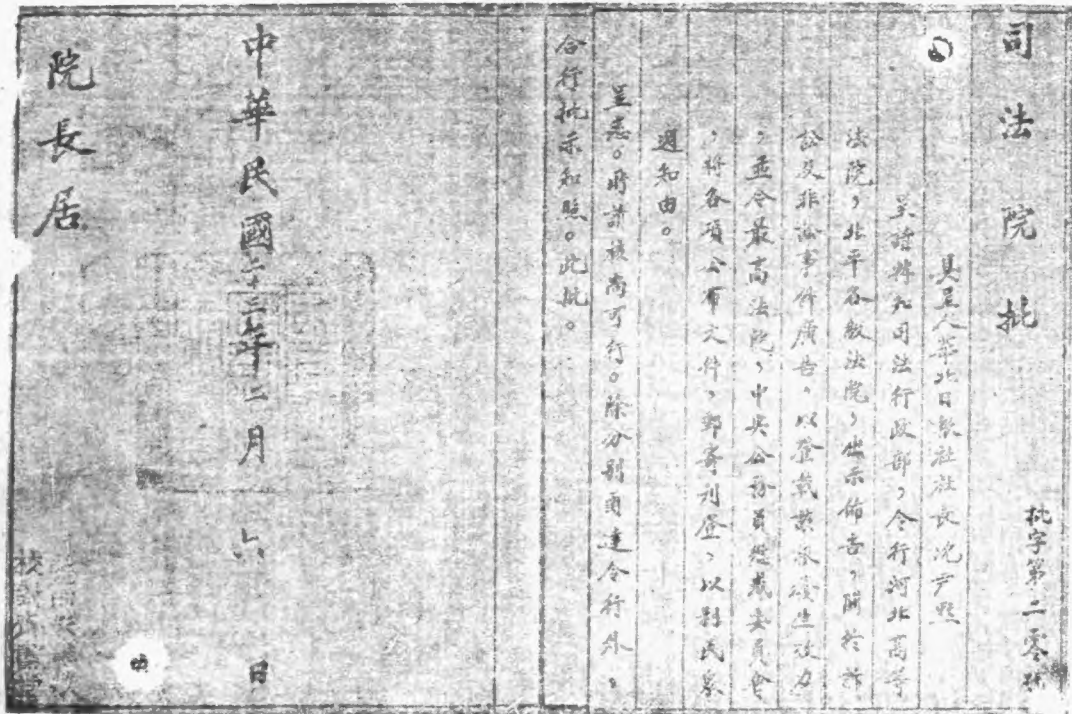 司法院批
批字第二零號
具呈人華北日報社社長沈尹默
呈請轉知司法行政部,令行河北高等
法院,北平各級法院,出示佈告,關於訴
訟及非訟事件廣告,以登載華北發生效力
,並令最高法院,中央公務員懲戒委員會
,將各項公布文件,郵寄刊登,以利民眾
週知由。
呈悉。所請核尚可行。除分別函達令行外,
合行批示知照。此批。
中華民國二十三年二月六日
院長居
校對